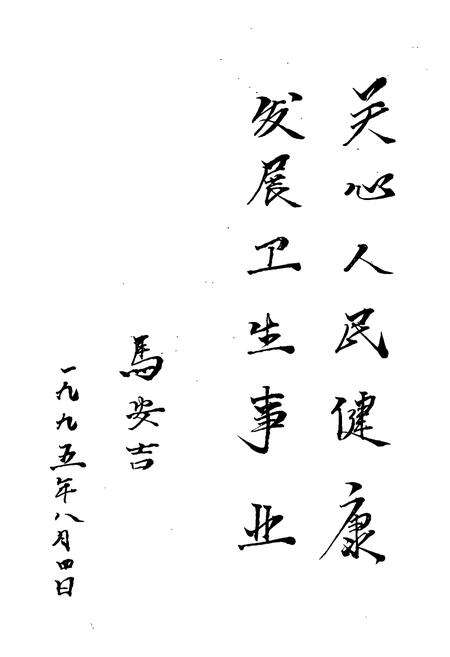 关心人民健康
发展卫生事业
馬安吉
一九九五年八月四日